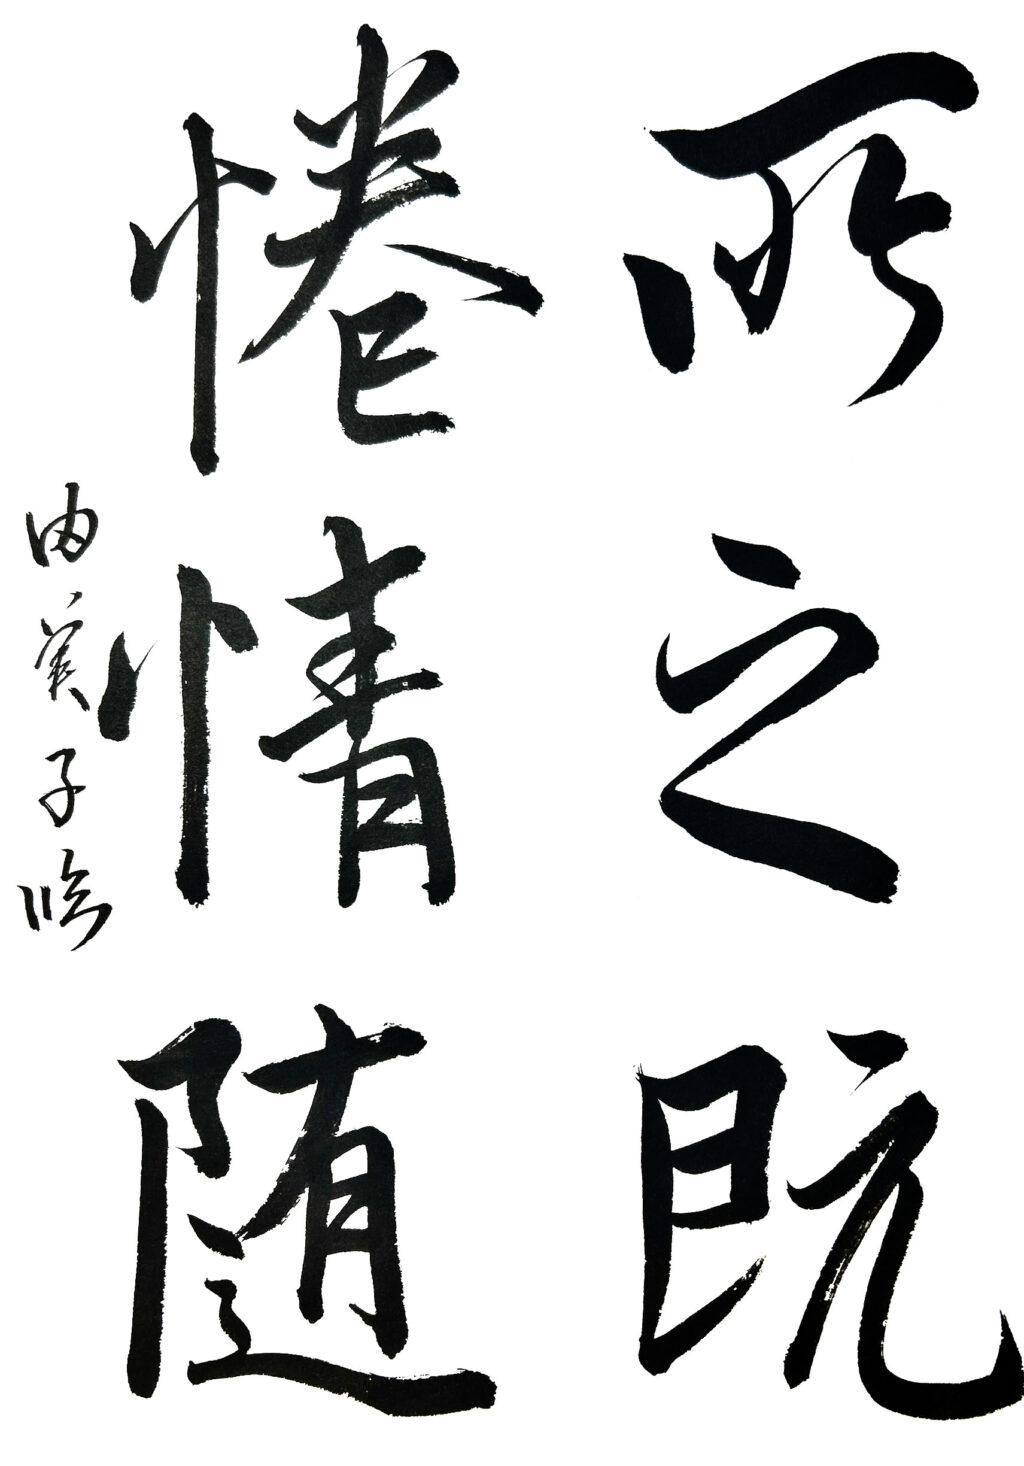 所之既
惓情随
由実子臨